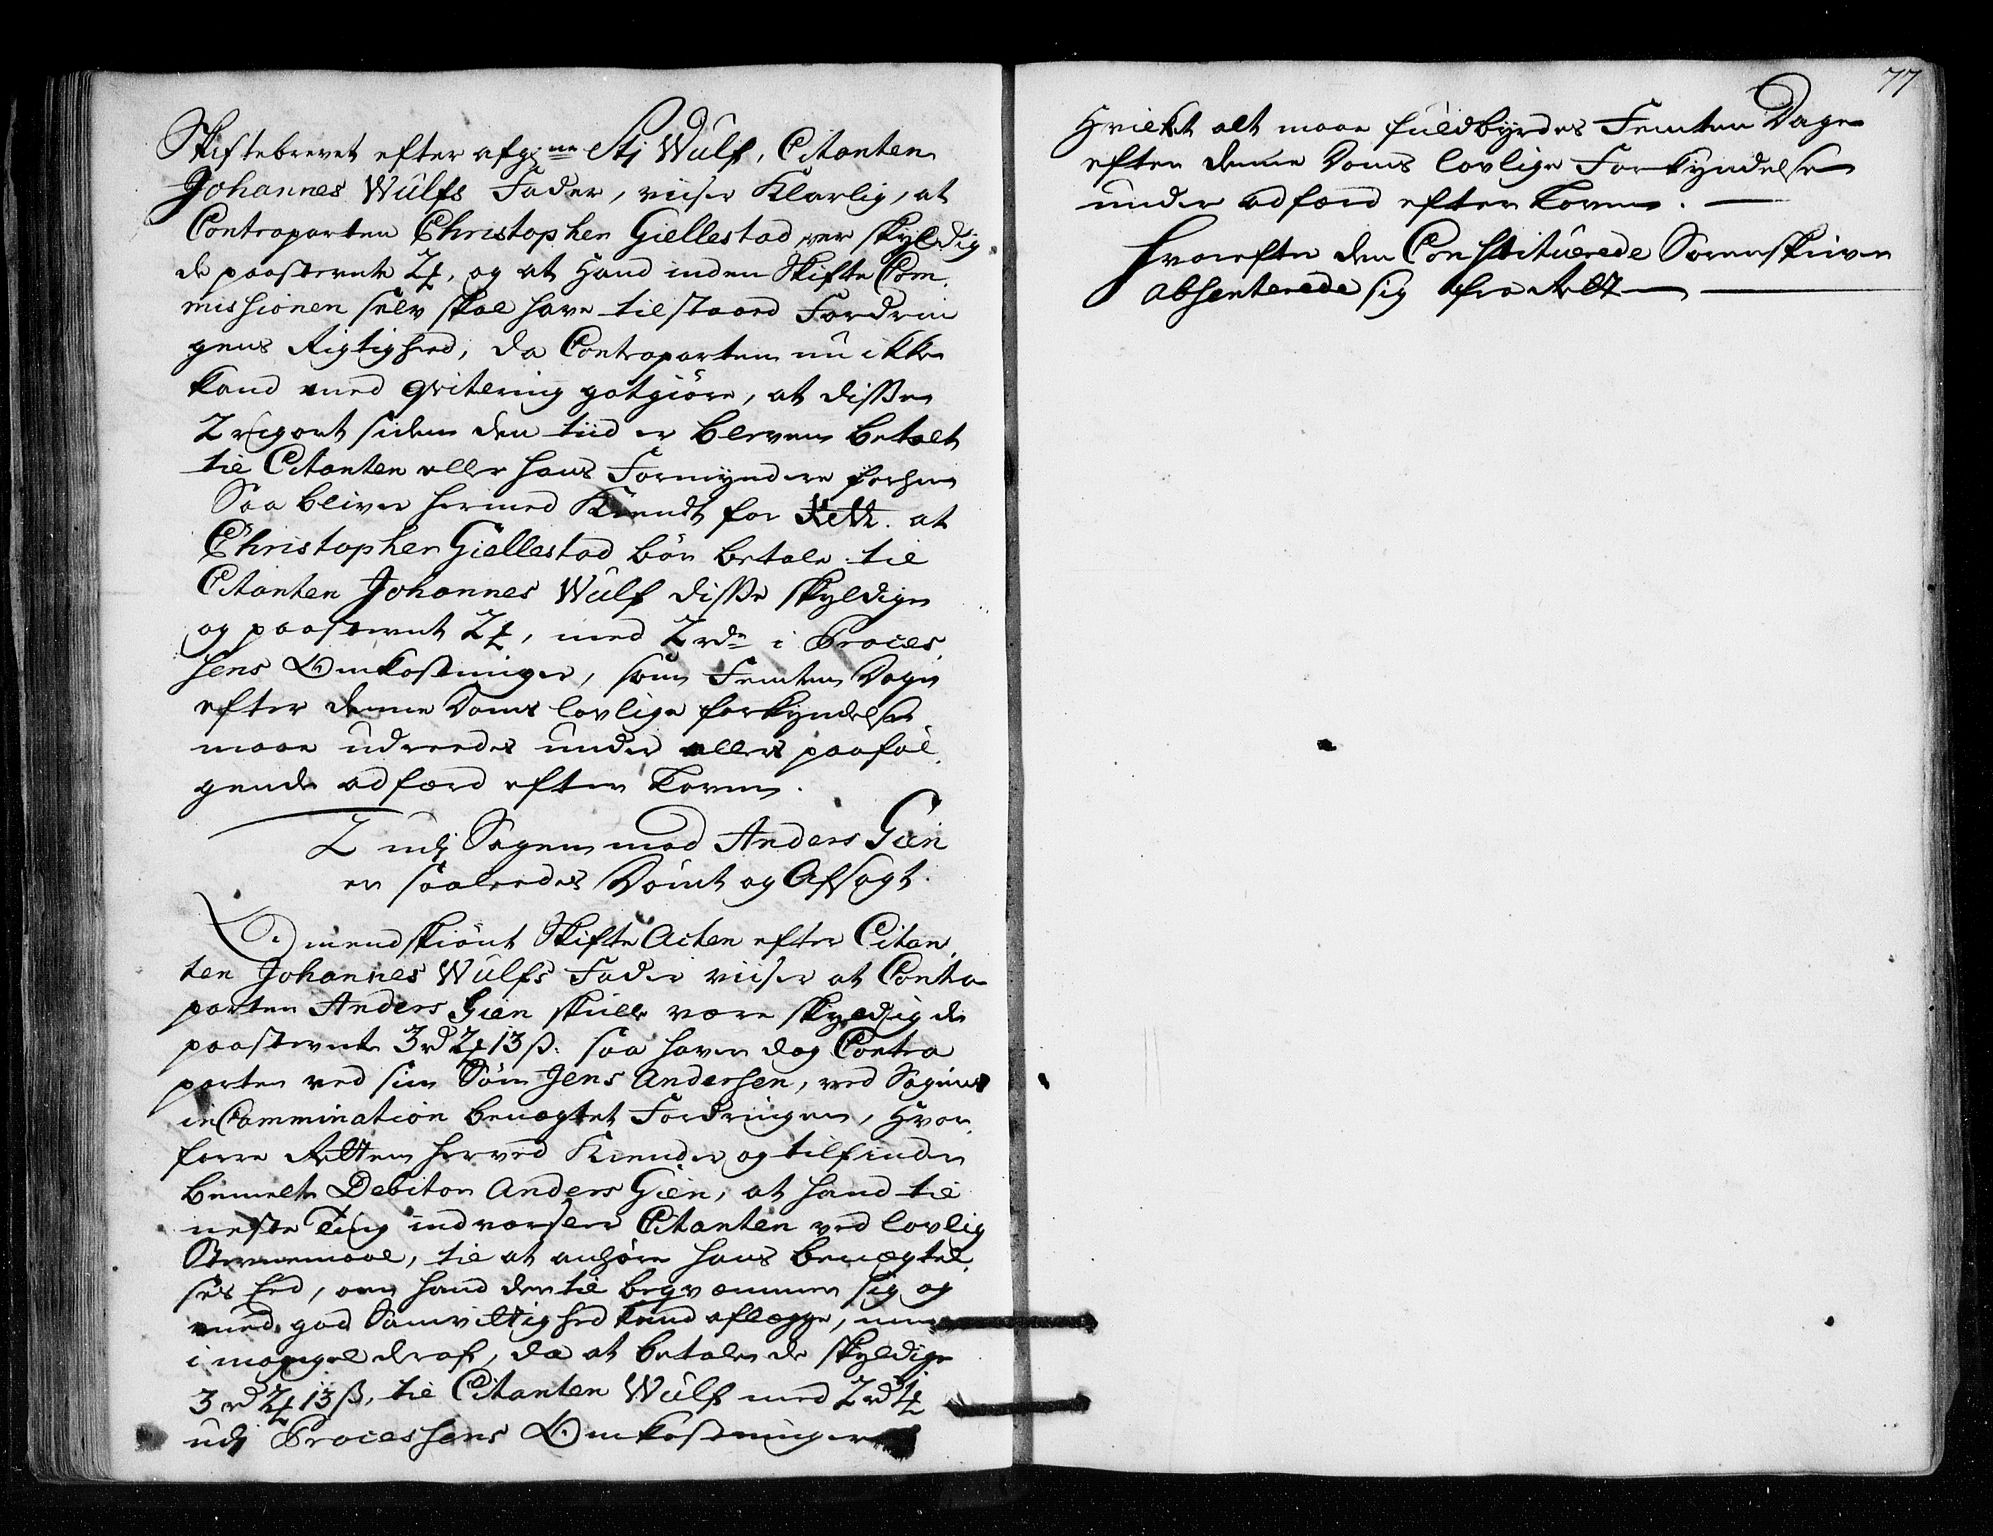 Skiftebrevet efter afg:ne Stj Wulf, Citanten
Johannes Wulfs Fader, viiser Klarlig, at
Contraparten Christopher Giellestad er skyldig
de paastevnte 2
, og at Hand inden Skifte Com-
missionen selv skal have tilstaaed Fordrin
gens Rigtighed, da Contraparten nu ikke
kand med qvitering gotgiöre, at disse
2 siden den tiid er bleven betalt
til Citanten eller hans Formyndere
Saa bliver hermed Kiendt for Rett. at
Christopher Giellestad bör betale til
Citanten Johannes Wulf disse skyldige
og paastevnt 2, med 2 rdr i Proces-
sens Omkostninger, som Femten Dage
efter denne Doms lovlige forkyndelse
maae udreedes under ellers paaföl-
gende adfærd efter Loven.
2 udj Sagen mod Anders Gien
er saaleedes Dömt og Afsagt.
Omendskiönt Skifte Acten efter Citan-
ten Johannes Wulfs Fader viiser at Contra
parten Anders Gien skulle være skyldig de
paastevnte 3 rd 2 13 ß. saa haver dog Contra
parten ved sin Sön Jens Andersen, ved Sagens
in Cammination benægtet Fordringen, Hvor-
forre Retten herved Kiender og tilfinder
bemelte Debitor Anders Gien, at hand til
neste Ting indvarsler Citanten ved lovlig
Stevnemaal, til at anhöre hans benægtel-
ses Eed, om hand dertil beqvæmmer sig og
med god Samvittighed kand aflægge, men
i mangel deraf, da at betale de skyldige
3 rd 2 13 ß, til Citanten Wulf med 2 rd
udj Processens Omkostninger
77
Hvilket alt maae fuldbyrdes Femten Dage
efter denne Doms lovlige Forkyndelse
under adfærd efter Loven.
Hvorefter den Constituerede Sorenskriver
absenterede sig fra Rett